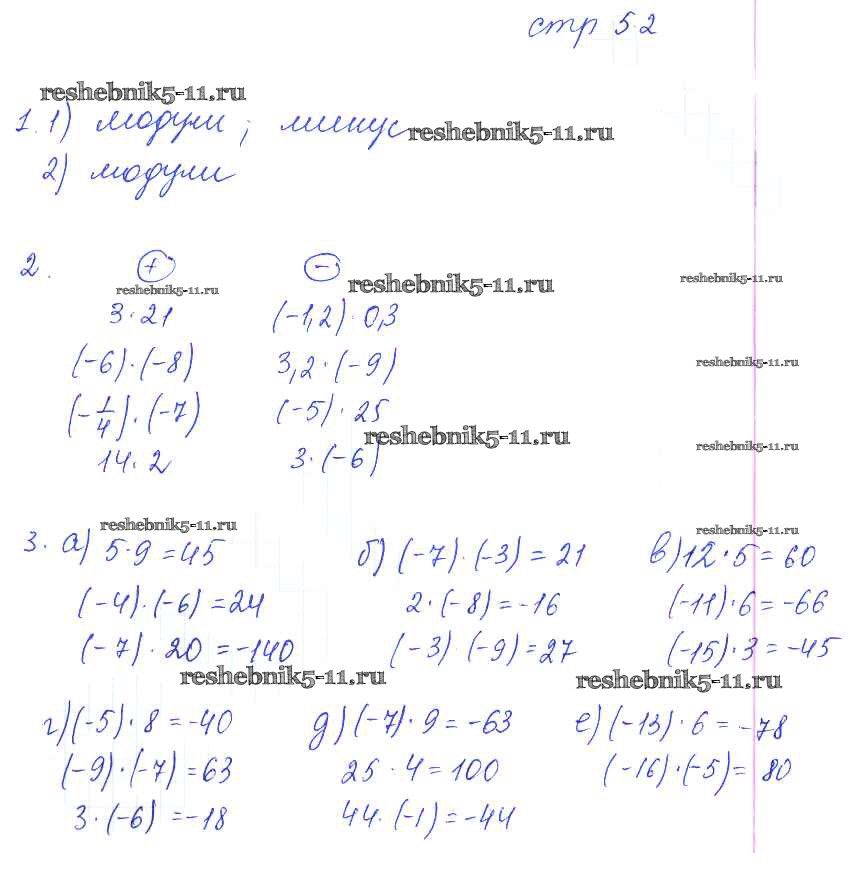 стр 52
reshebnik5-11.ru
1. 1) модули; минус reshebnik5-11.ru
2) модули
2. + − reshebnik5-11.ru reshebnik5-11.ru
reshebnik5-11.ru
3·21 (-1,2)·0,3
(-6)·(-8) 3,2·(-9) reshebnik5-11.ru
(-1/4)·(-7) (-5)·25
reshebnik5-11.ru reshebnik5-11.ru
14·2 3·(-6)
reshebnik5-11.ru reshebnik5-11.ru
3. а) 5·9 = 45 б) (-7)·(-3) = 21 в) 12·5 = 60
(-4)·(-6) = 24 2·(-8) = -16 (-11)·6 = -66
(-7)·20 = -140 (-3)·(-9) = 27 (-15)·3 = -45
reshebnik5-11.ru reshebnik5-11.ru
г) (-5)·8 = -40 д) (-7)·9 = -63 е) (-13)·6 = -78
(-9)·(-7) = 63 25·4 = 100 (-16)·(-5) = 80
3·(-6) = -18 44·(-1) = -44